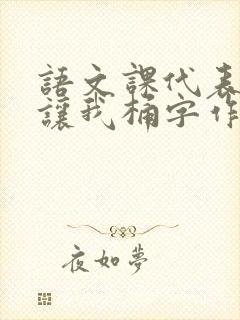 語文課代表
讓我桶字作
夜如夢